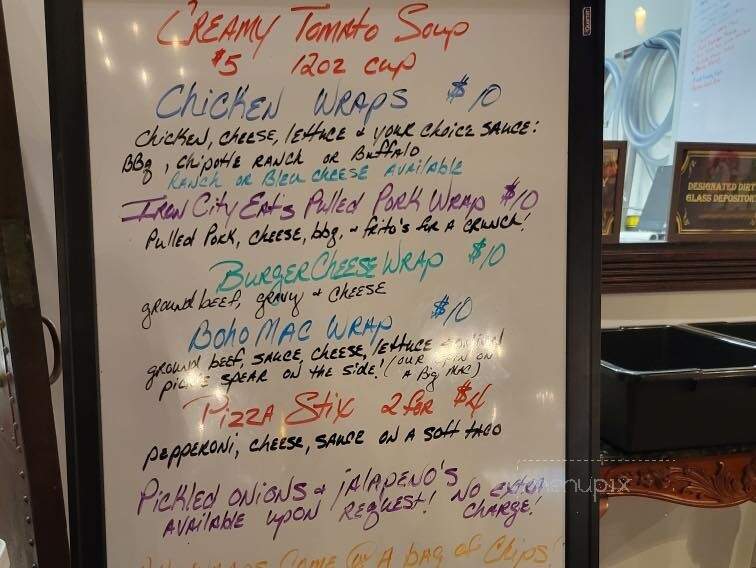 CREAMY TOMATO SOUP
$5 12oz CUP
CHICKEN WRAPS $10
CHICKEN, CHEESE, LETTUCE & YOUR CHOICE SAUCE:
BBQ, CHIPOTLE RANCH OR BUFFALO
RANCH OR BLEU CHEESE AVAILABLE
IRON CITY EATS PULLED PORK WRAP $10
PULLED PORK, CHEESE, bbq, & FRITO'S FOR A CRUNCH!
BURGER CHEESE WRAP $10
ground beef, gravy & CHEESE
BOHO MAC WRAP $10
ground beef, SAUCE, CHEESE, LETTUCE & ONION
PICKLE SPEAR ON THE SIDE! (OUR SPIN ON
A Big MAC)
PIZZA STIX 2 FOR $4
PEPPERONI, CHEESE, SAUCE ON A SOFT TACO
PICKLED ONIONS & JALAPENO'S
AVAILABLE UPON REQUEST! NO EXTRA
CHARGE!
WRAPS COME @ A BAG OF CHIPS!
DESIGNATED DIRT
GLASS DEPOSITOR
menupix
Quartet